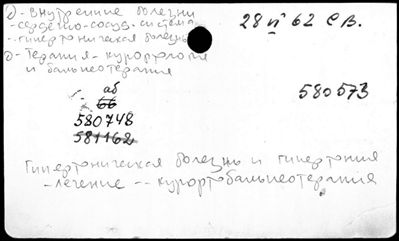 1) - Внутренние болезни
- сердечно-сосуд. система
- гипертоническая болезнь
2) - Терапия - курортология
и бальнеотерапия
28 II 62 С В.
аб
66
580748
581162
580573
Гипертоническая болезнь и гипертония
- лечение -- курортобальнеотерапия